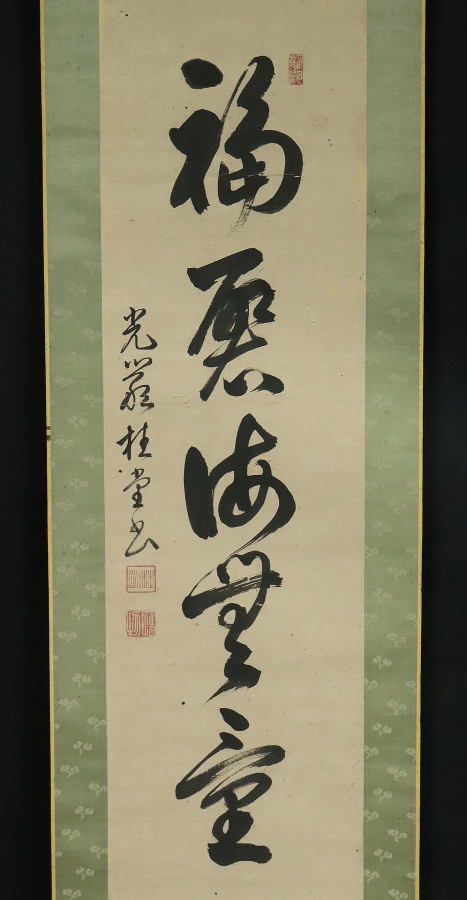 福聚海無量
光嚴桂堂書